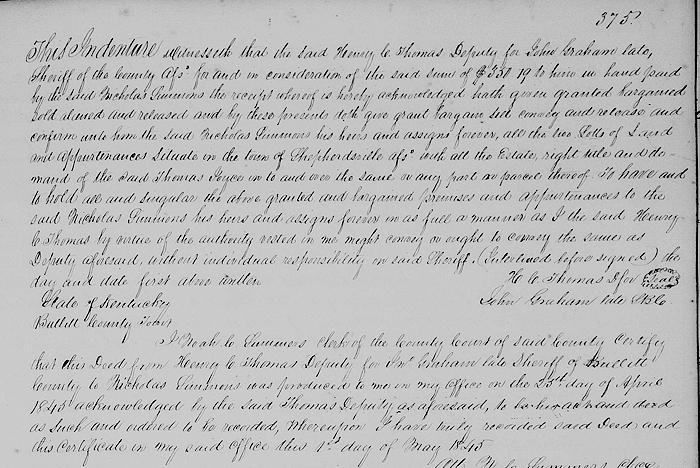 375.
This Indenture witnesseth that the said Henry C. Thomas Deputy for John Graham late
Sheriff of the County afsd for and in consideration of the said sum of $330 19 to him in hand paid
by the said Nicholas Simmons the receipt whereof is hereby acknowledged hath given granted bargained
sold aliened and released and by these presents doth give grant bargain, sell convey and release and
confirm unto him the said Nicholas Simmons his heirs and assigns forever, all the two Lotts of Land
and Appurtenances Situate in the town of Shepherdsville afsd with all the Estate, right title and de-
mand of the said Thomas Joyce in to and over the same or any part or parcel thereof. To have and
to hold all and singular the above granted and bargained premises and appurtenances to the
said Nicholas Simmons his heirs and assigns forever in as full a manner as I the said Henry
C. Thomas by virtue of the authority vested in me might convey or ought to convey the same as
Deputy aforesaid, without individual responsibility on said Sheriff. (Interlined before signed) the
day and date first above written.
H. C. Thomas D for Seal
State of Kentucky
John Graham late S B Co.
Bullitt County Towit
I Noah C. Summers Clerk of the County Court of said County Certify
that this Deed from Henry C. Thomas Deputy for Jno Graham late Sheriff of Bullitt
County to Nicholas Simmons was produced to me in my office on the day of April
1845 acknowledged by the said Thomas Deputy as aforesaid, to be his act and deed
as Such and ordered to be recorded, whereupon I have truly recorded said Deed and
this Certificate in my said office this 1st day of May 1845
Att. N. C. Summers